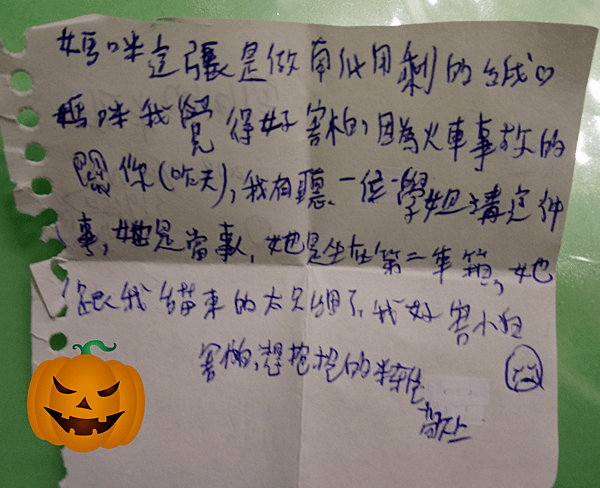 媽咪這張是做南瓜用剩的紙♡
媽咪我覺得好害怕,因為火車事故的
關係(昨天),我有聽一位學姐講這件
事,她是當事人,她是坐在第二車箱,她
跟我描述的太仔細了,我好害怕
害怕,想抱抱的
敬上